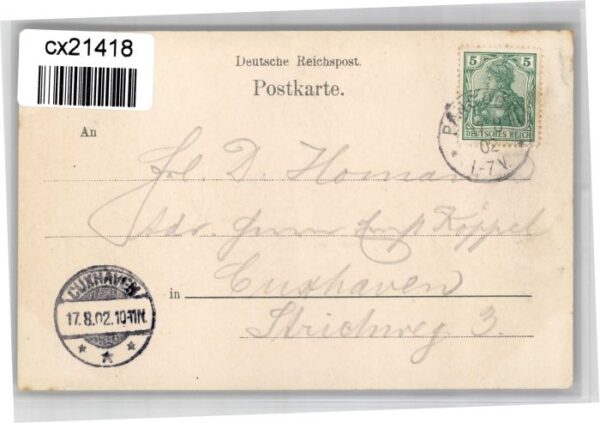 cx21418
Deutsche Reichspost.
Postkarte.
5 5
DEUTSCHES REICH
02
1-7V.
An
Frl. D. Homann
Adr. Herrn Ernst Köppel
in Cuxhaven
Strichweg 3.
CUXHAVEN
17.8.02.10-11N.